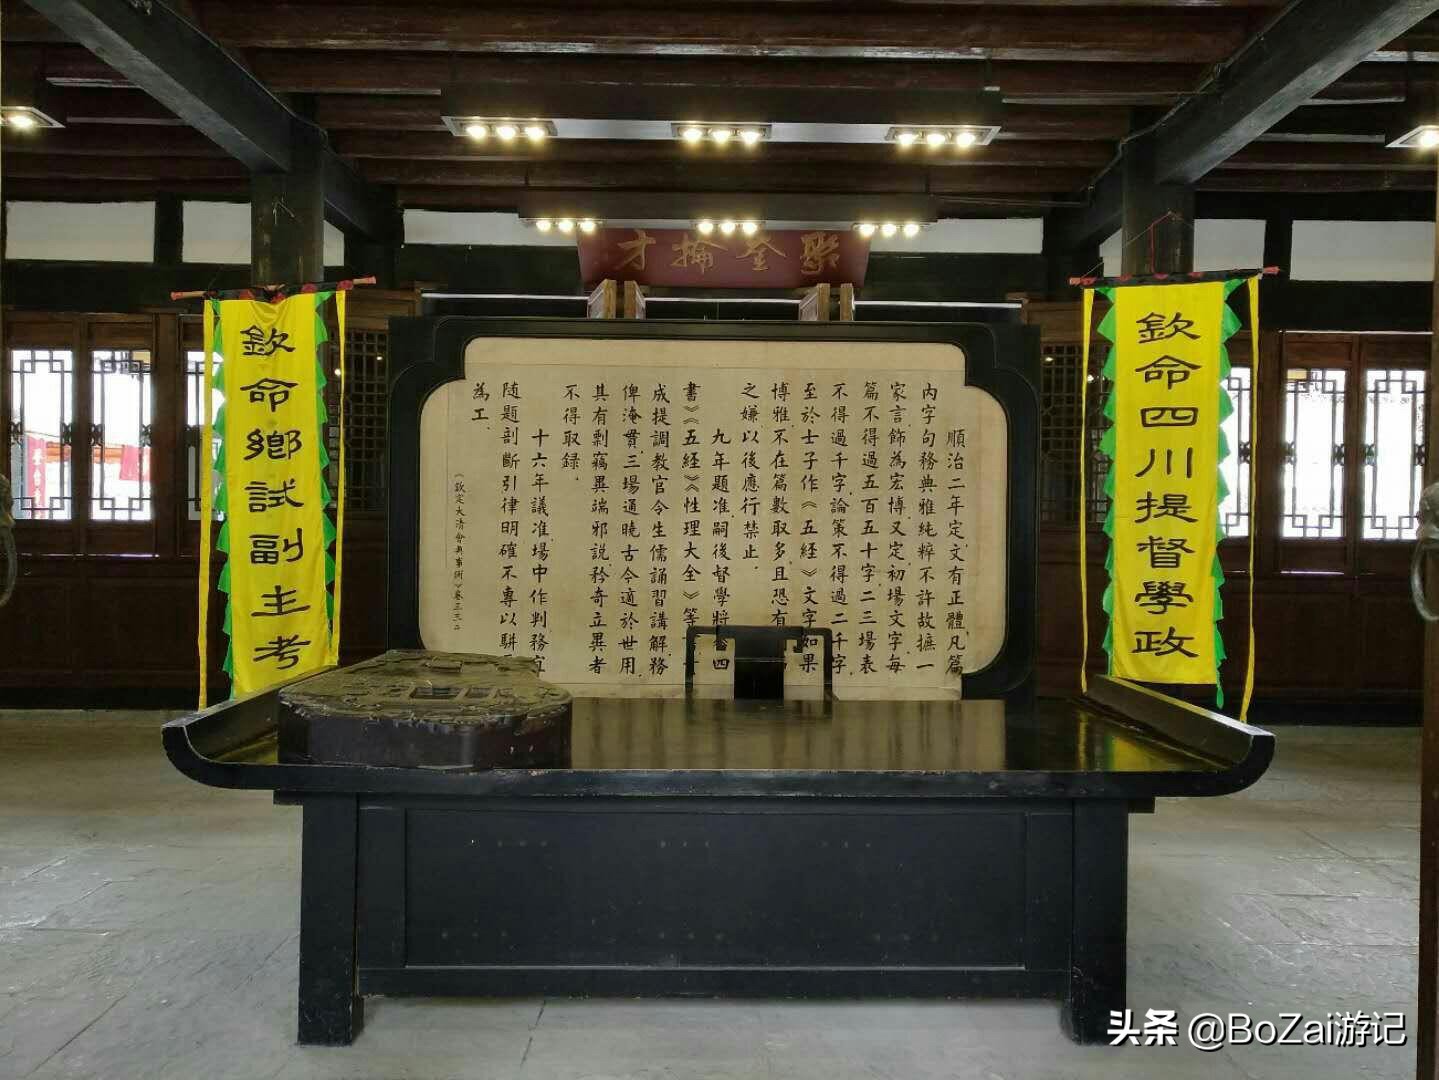 聚奎掄才
欽命四川提督學政
順治二年定,文有正體,凡篇
內字句務典雅純粹不許故摭一
家言,飾為宏博.又定,初場文字每
篇不得過五百五十字,二三場表
不得過千字,論策不得過二千字.
至於士子作《五經》文字,如果
博雅,不在篇數取多,且恐有
之嫌,以後應行禁止.
九年題准,嗣後督學將四
書》《五經》《性理大全》等
成提調教官,令生儒誦習講解,務
俾淹貫,三場通曉古今,適於世用.
其有剽竊異端邪說,矜奇立異者
不得取錄.
十六年議准,場中作判,務
随題剖斷,引律明確,不專以駢
為工.
《欽定大清會典事例》卷三三二
欽命鄉試副主考
头条 @BoZai游记